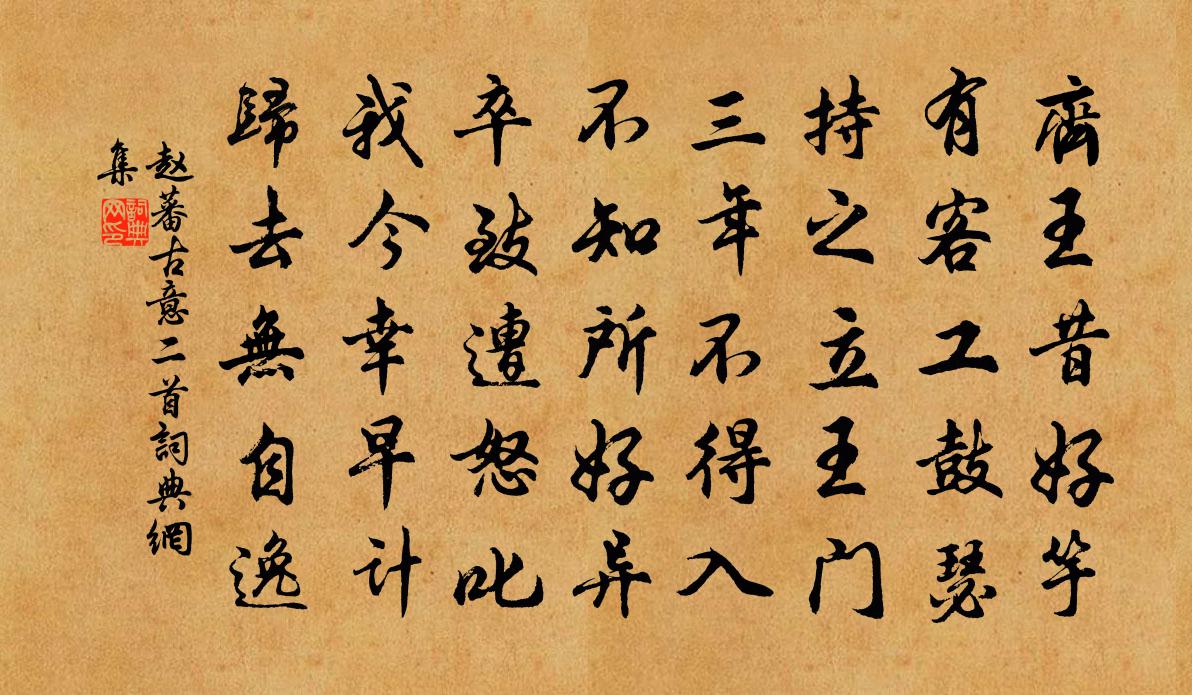 齊王昔好竽
有客工鼓瑟
持之立王门
三年不得入
不知所好异
卒致遭怒叱
我今幸早计
歸去無自逸
赵蕃古意二首詞典網
集
詞典
网印